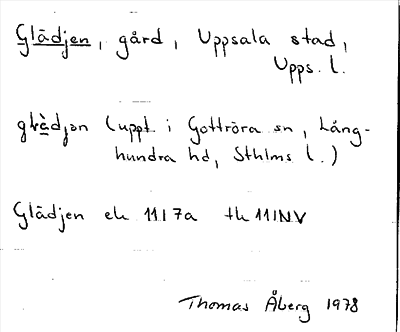 Glädjen, gård, Uppsala stad,
Upps. l.
glɛ̀djən (uppt. i Gottröra sn, Lång-
hundra hd, Sthlms l.)
Glädjen ek 11I7a tk 11INV
Thomas Åberg 1978